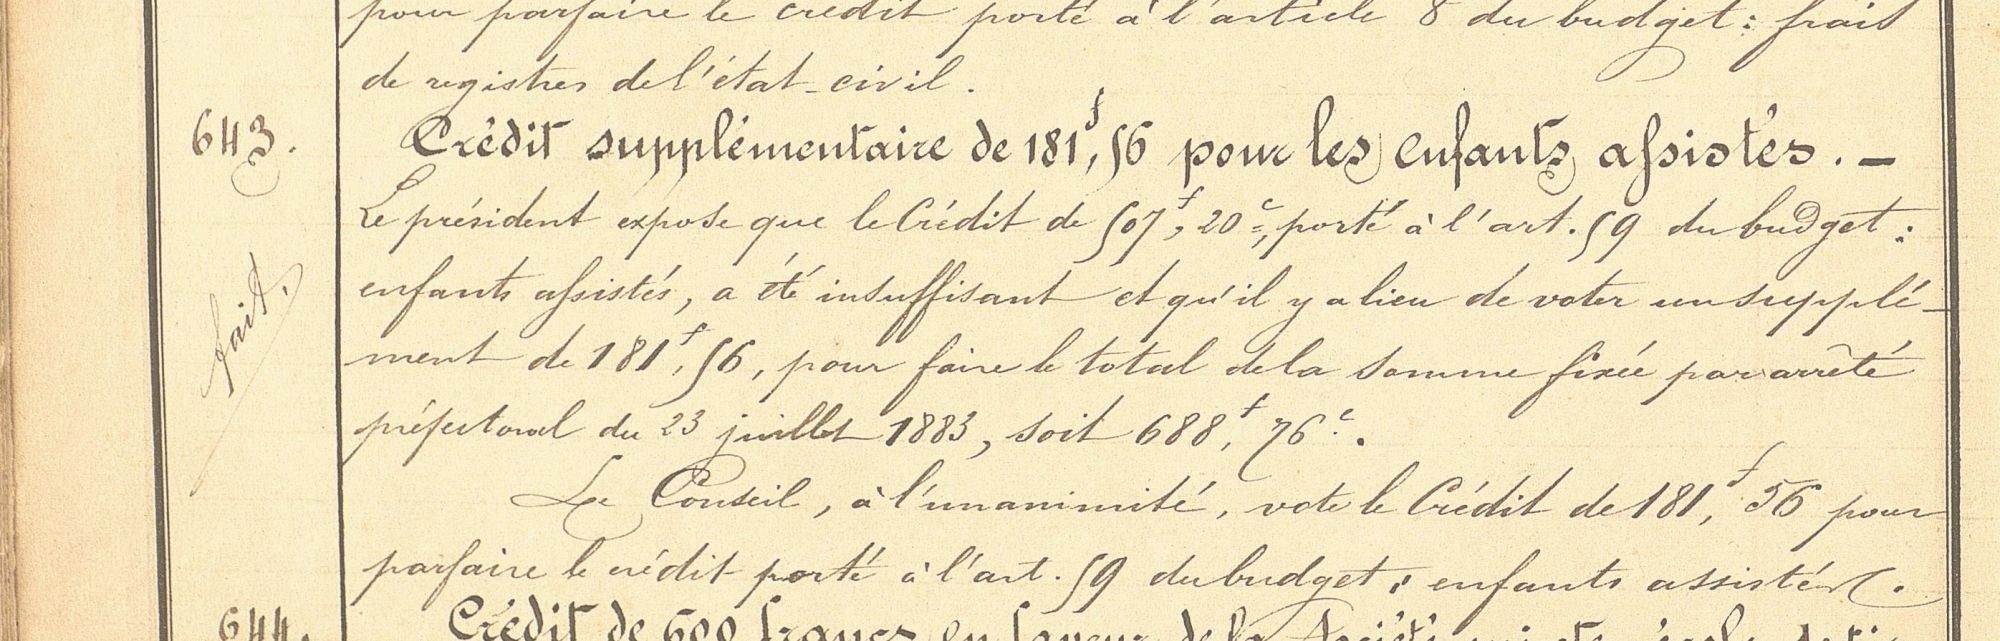 pour parfaire le crédit porté à l'article 8 du budget : frais
de registres de l'état-civil.
643.
Crédit supplémentaire de 181f,56 pour les enfants assistés. —
Le président expose que le Crédit de 507f,20c, porté à l'art. 59 du budget :
enfants assistés, a été insuffisant et qu'il y a lieu de voter un supplé-
fait.
ment de 181f,56, pour faire le total de la somme fixée par arrêté
préfectoral du 23 juillet 1883, soit 688f,76c.
Le Conseil, à l'unanimité, vote le Crédit de 181f,56 pour
parfaire le crédit porté à l'art. 59 du budget : enfants assistés.
644.
Crédit de 600 francs en faveur de la Société